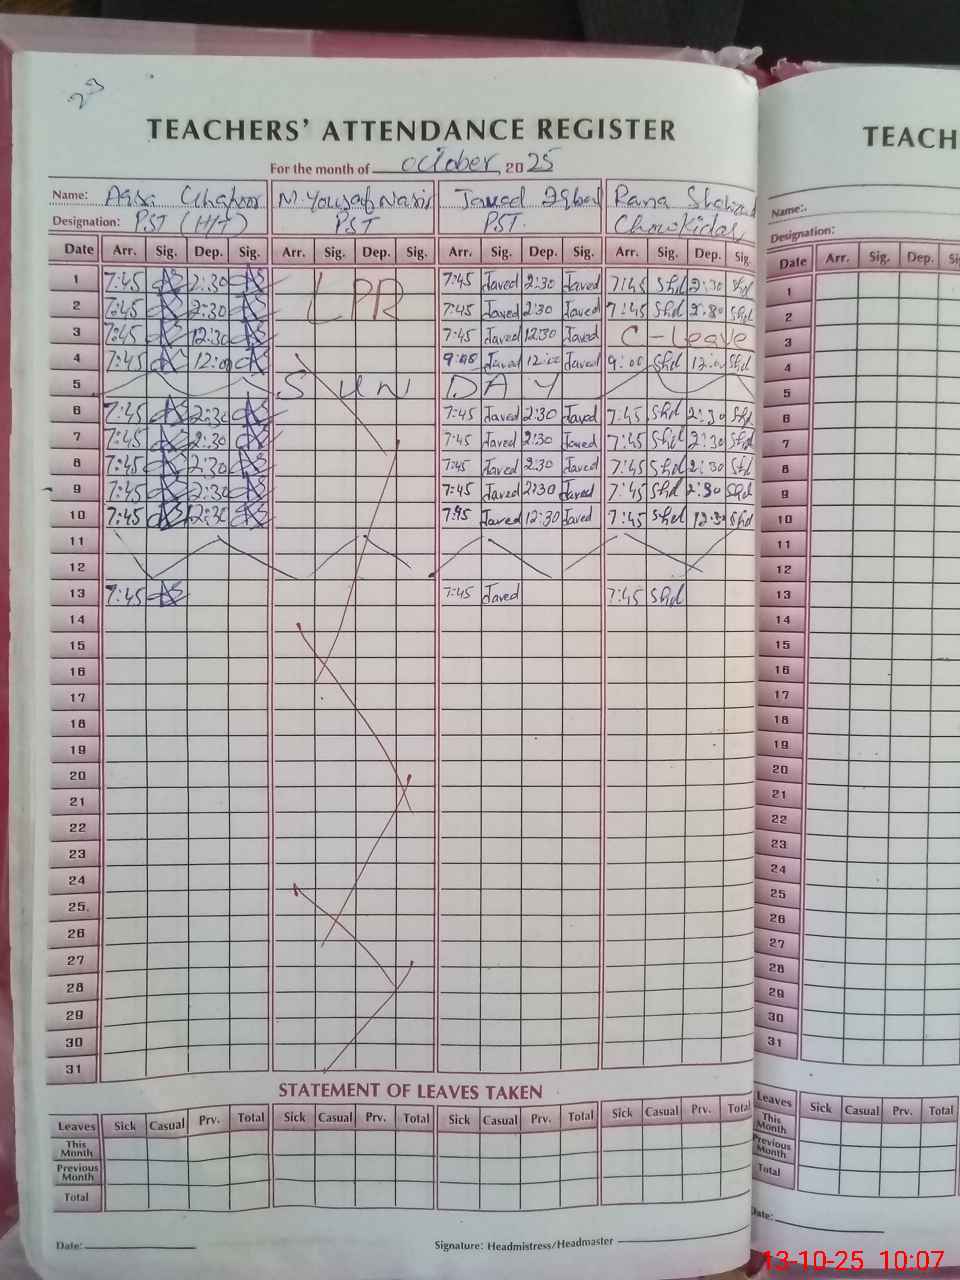 23
TEACHERS' ATTENDANCE REGISTER
For the month of October 2025
Name: M. Yousaf Nasir Javed Iqbal Rana
Designation: PST (H/T) PST PST. Chowkidar
Date Arr. Sig. Dep. Sig. Arr. Sig. Dep. Sig. Arr. Sig. Dep. Sig. Arr. Sig. Dep. Sig.
1 7:45 AS 2:30 AS LPR 7:45 Javed 2:30 Javed 7:45 Shd 2:30 Shd
2 7:45 AS 2:30 AS 7:45 Javed 2:30 Javed 7:45 Shd 2:30 Shd
3 7:45 AS 12:30 AS 7:45 Javed 12:30 Javed C-Leave
4 7:45 AS 12:00 AS 9:00 Shd 12:00 Shd Javed 12:00 Javed
5 SUN DAY
6 7:45 AS 2:30 AS 7:45 Javed 2:30 Javed 7:45 Shd 2:30 Shd
7 7:45 AS 2:30 AS 7:45 Javed 2:30 Javed 7:45 Shd 2:30 Shd
8 7:45 AS 2:30 AS 7:45 Javed 2:30 Javed 7:45 Shd 2:30 Shd
9 7:45 AS 2:30 AS 7:45 Javed 2:30 Javed 7:45 Shd 2:30 Shd
10 7:45 AS 12:30 AS 7:45 Javed 12:30 Javed 7:45 Shd 12:30 Shd
11
12
13 7:45 AS 7:45 Javed 7:45 Shd
14
15
16
17
18
19
20
21
22
23
24
25
26
27
28
29
30
31
STATEMENT OF LEAVES TAKEN
Leaves Sick Casual Prv. Total Sick Casual Prv. Total Sick Casual Prv. Total Sick Casual Prv. Total
This Month
Previous Month
Total
Date: Signature: Headmistress/Headmaster
TEACH
Name:
Designation:
Date Arr. Sig. Dep. Sig.
1
2
3
4
5
6
7
8
9
10
11
12
13
14
15
16
17
18
19
20
21
22
23
24
25
26
27
28
29
30
31
Leaves Sick Casual Prv. Total
This Month
Previous Month
Total
Date:
13-10-25 10:07